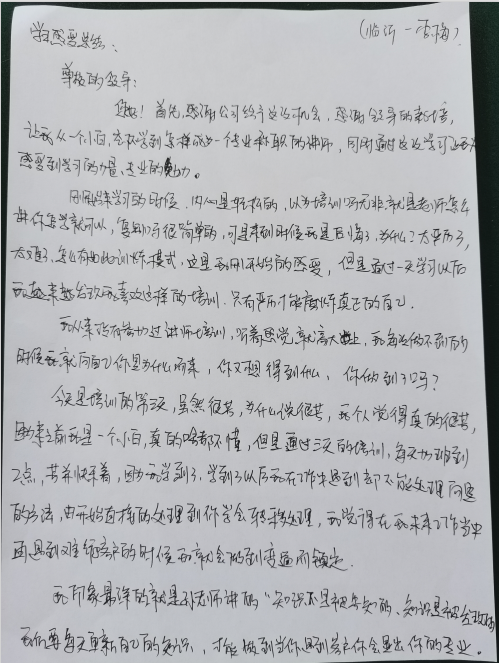 学习感受总结：
（临沂一李梅）
尊敬的领导：
您好！首先感谢公司给予这次机会，感谢领导的栽培，
让我从一个小白，在次学到怎样成为一个专业称职的讲师，同时通过这次学习让我
感受到学习的力量、专业的魅力。
刚开始来学习的时候，内心是轻松的，以为培训吗无非就是老师怎么
讲你怎学就可以，复制吗很简单的，可是来到时候我是后悔了，为什么？太严历了，
太难了，怎么有如此训练模式，这是我刚开始的感受，但是通过一天学习以后
我越来越喜欢这样的培训，只有严历才能磨练真正的自己。
我从来没有接触过讲师培训，听着感觉就高大上，我每次做不到的
时候我就问自己你是为什么而来，你又想得到什么，你做到了吗？
今天是培训的第三天，虽然很苦，为什么说很苦，我个人觉得真的很苦，
因为来之前我是一个小白，真的啥都不懂，但是通过三天的培训，每天加班到
2点，苦并快乐着，因为我学到了，学到了以后我在工作中遇到部不能处理问题
的方法，由开始直接的处理到你学会转乘处理，我觉得在我未来工作当中
再遇到难缠客户的时候我就会做到变通而镇定。
我印象最深的就是孙老师讲的“知识不是被告知的，知识是被
我们要每天更新自己的知识，才能做到当你遇到客户你会显出你的专业。